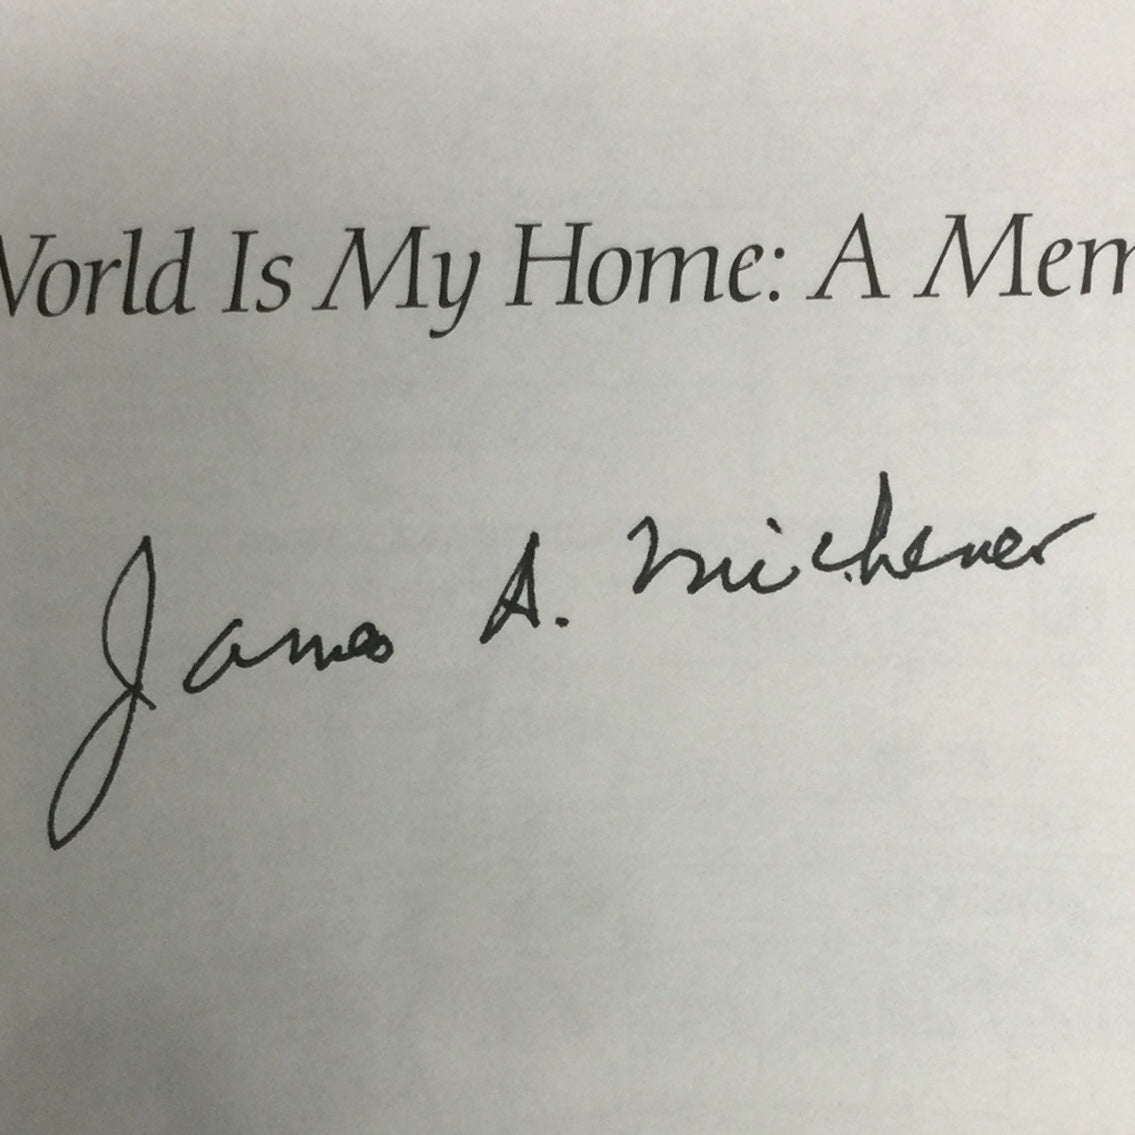 World Is My Home: A Mem
James A. Michener